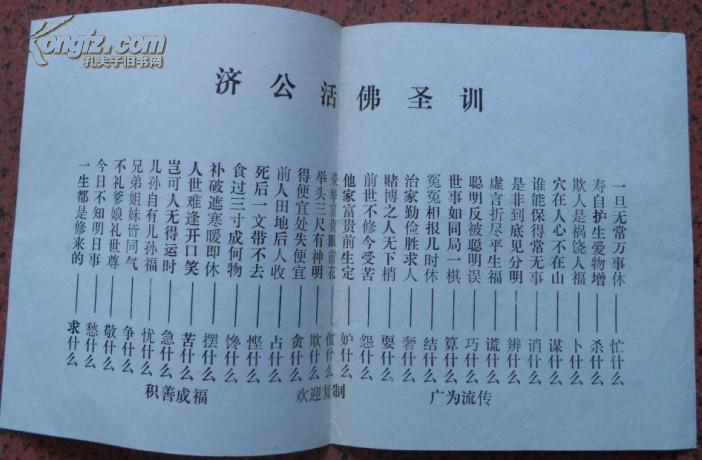 Kongfz.com
孔夫子旧书网
济公活佛圣训
一生都是修来的——求什么
今日不知明日事——愁什么
不礼爹娘礼世尊——敬什么
兄弟姐妹皆同气——争什么
儿孙自有儿孙福——忧什么
岂可人无得运时——急什么
人世难逢开口笑——苦什么
补破遮寒暖即休——摆什么
食过三寸成何物——馋什么
死后一文带不去——悭什么
前人田地后人收——占什么
得便宜处失便宜——贪什么
举头三尺有神明——欺什么
荣华富贵眼前花——傲什么
他家富贵前生定——妒什么
前世不修今受苦——怨什么
赌博之人无下梢——耍什么
治家勤俭胜求人——奢什么
冤冤相报几时休——结什么
世事如同局一棋——算什么
聪明反被聪明误——巧什么
虚言折尽平生福——谎什么
是非到底见分明——辨什么
谁能保得常无事——诮什么
穴在人心不在山——谋什么
欺人是祸饶人福——卜什么
寿自护生爱物增——杀什么
一旦无常万事休——忙什么
积善成福 欢迎复制 广为流传